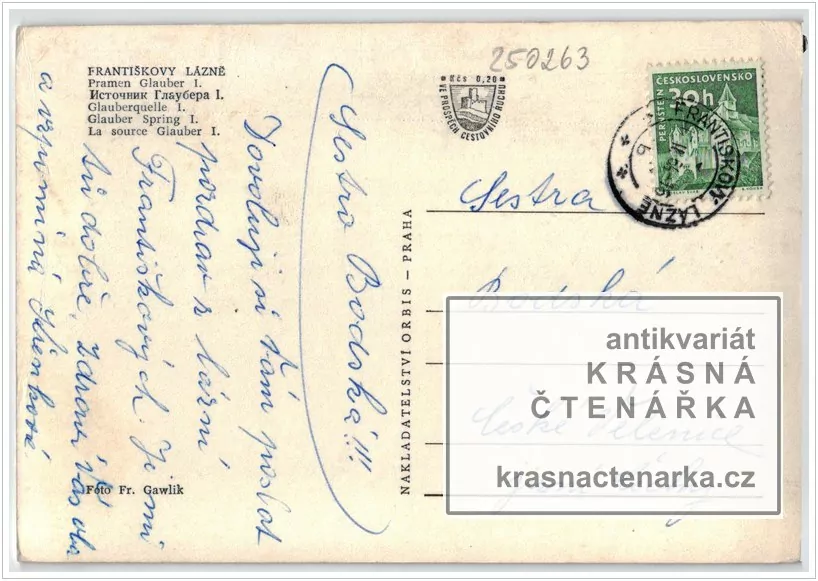 250263
FRANTIŠKOVY LÁZNĚ
Pramen Glauber I.
Источник Глаубера I.
Glauberquelle I.
Glauber Spring I.
La source Glauber I.
Kčs 0,20
VE PROSPĚCH CESTOVNÍHO RUCHU
ČESKOSLOVENSKO
30h
PERNŠTEJN
FRANTIŠKOVY LÁZNĚ
Sestro Bodská!!!
Dovoluji si Vám poslat
pozdrav z lázní
Františkových. Je mi
tu dobře, zdraví vás oba
a vzpomíná
Foto Fr. Gawlik
NAKLADATELSTVÍ ORBIS – PRAHA
Sestra
Bodská
České Velenice
antikvariát
KRÁSNÁ
ČTENÁŘKA
krasnactenarka.cz